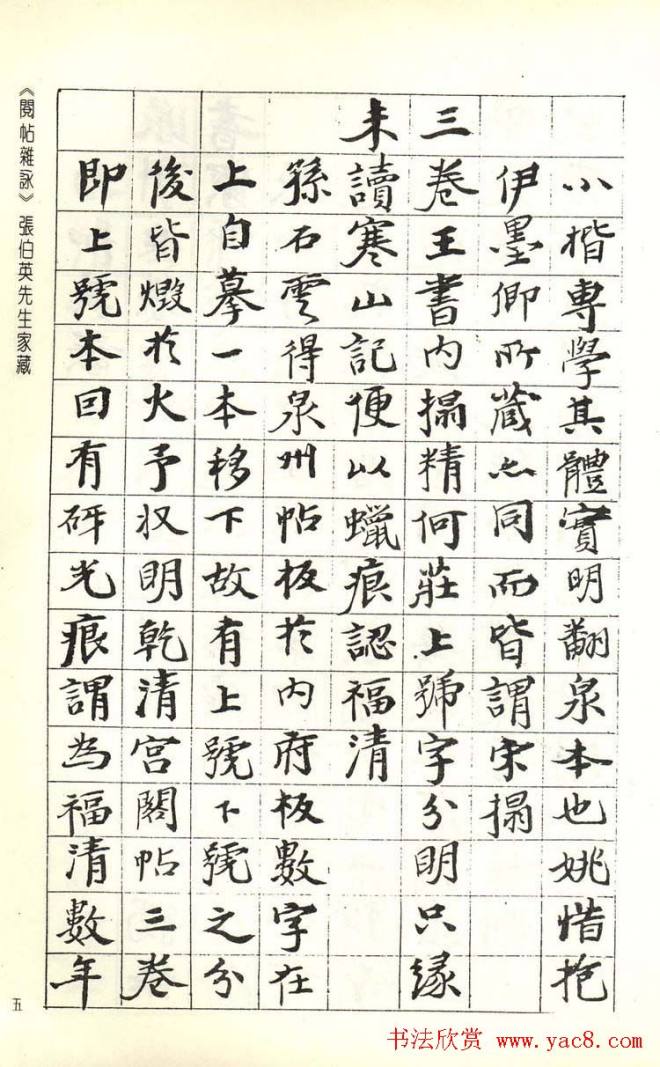 小楷專學其體實明翻泉本也姚惜抱
伊墨卿所藏亦同而皆謂宋搨
三卷王書內搨精何莊上號字分明只緣
未讀寒山記便以蠟痕認福清
孫石雲得泉州帖板於內府板數字在
上自摹一本移下故有上號下號之分
後皆燬於火予收明乾清宮閣帖三卷
即上號本回有砑光痕謂為福清數年
《閱帖雜詠》張伯英先生家藏
五
书法欣赏 www.yac8.com